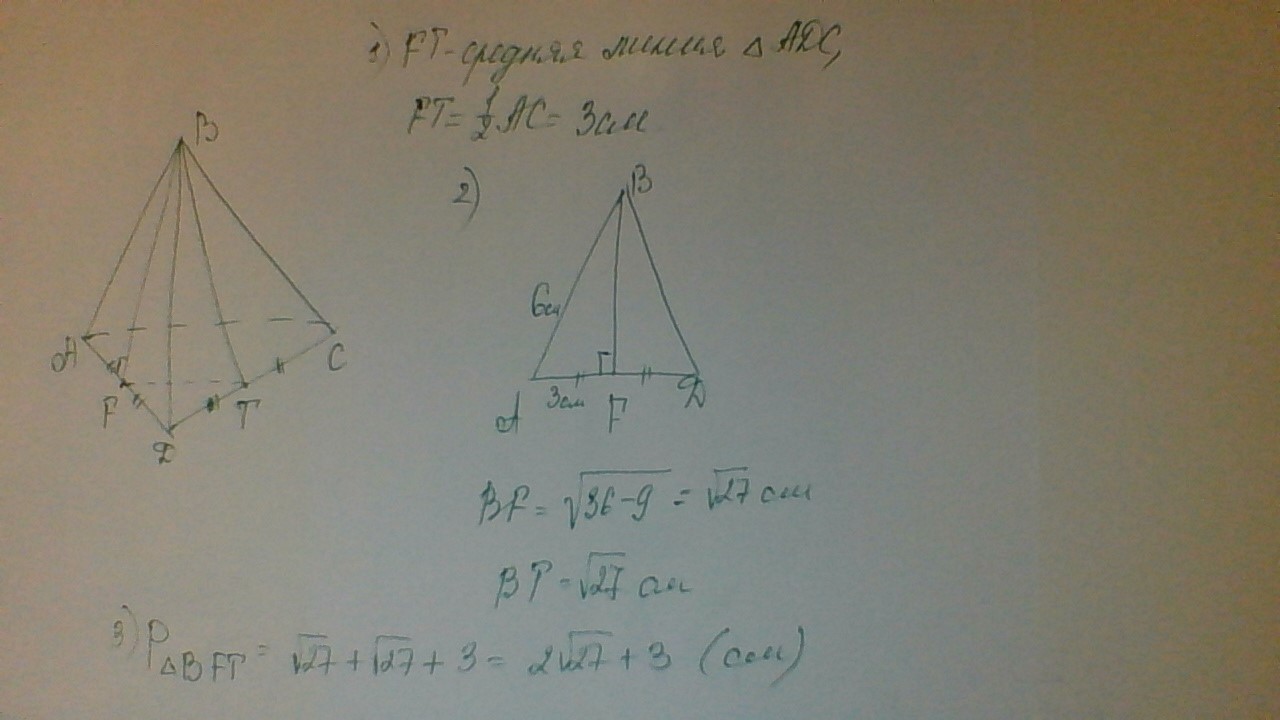 1) FT - средняя линия △ ADC,
FT = 1/2 AC = 3 см
B
A
F
D
T
C
2)
B
6см
A
3см
F
D
BF = √(36-9) = √27 см
BT = √27 см
3) P△BFT = √27 + √27 + 3 = 2√27 + 3 (см)